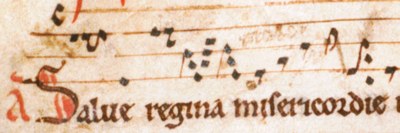 A Salue regina misericordie